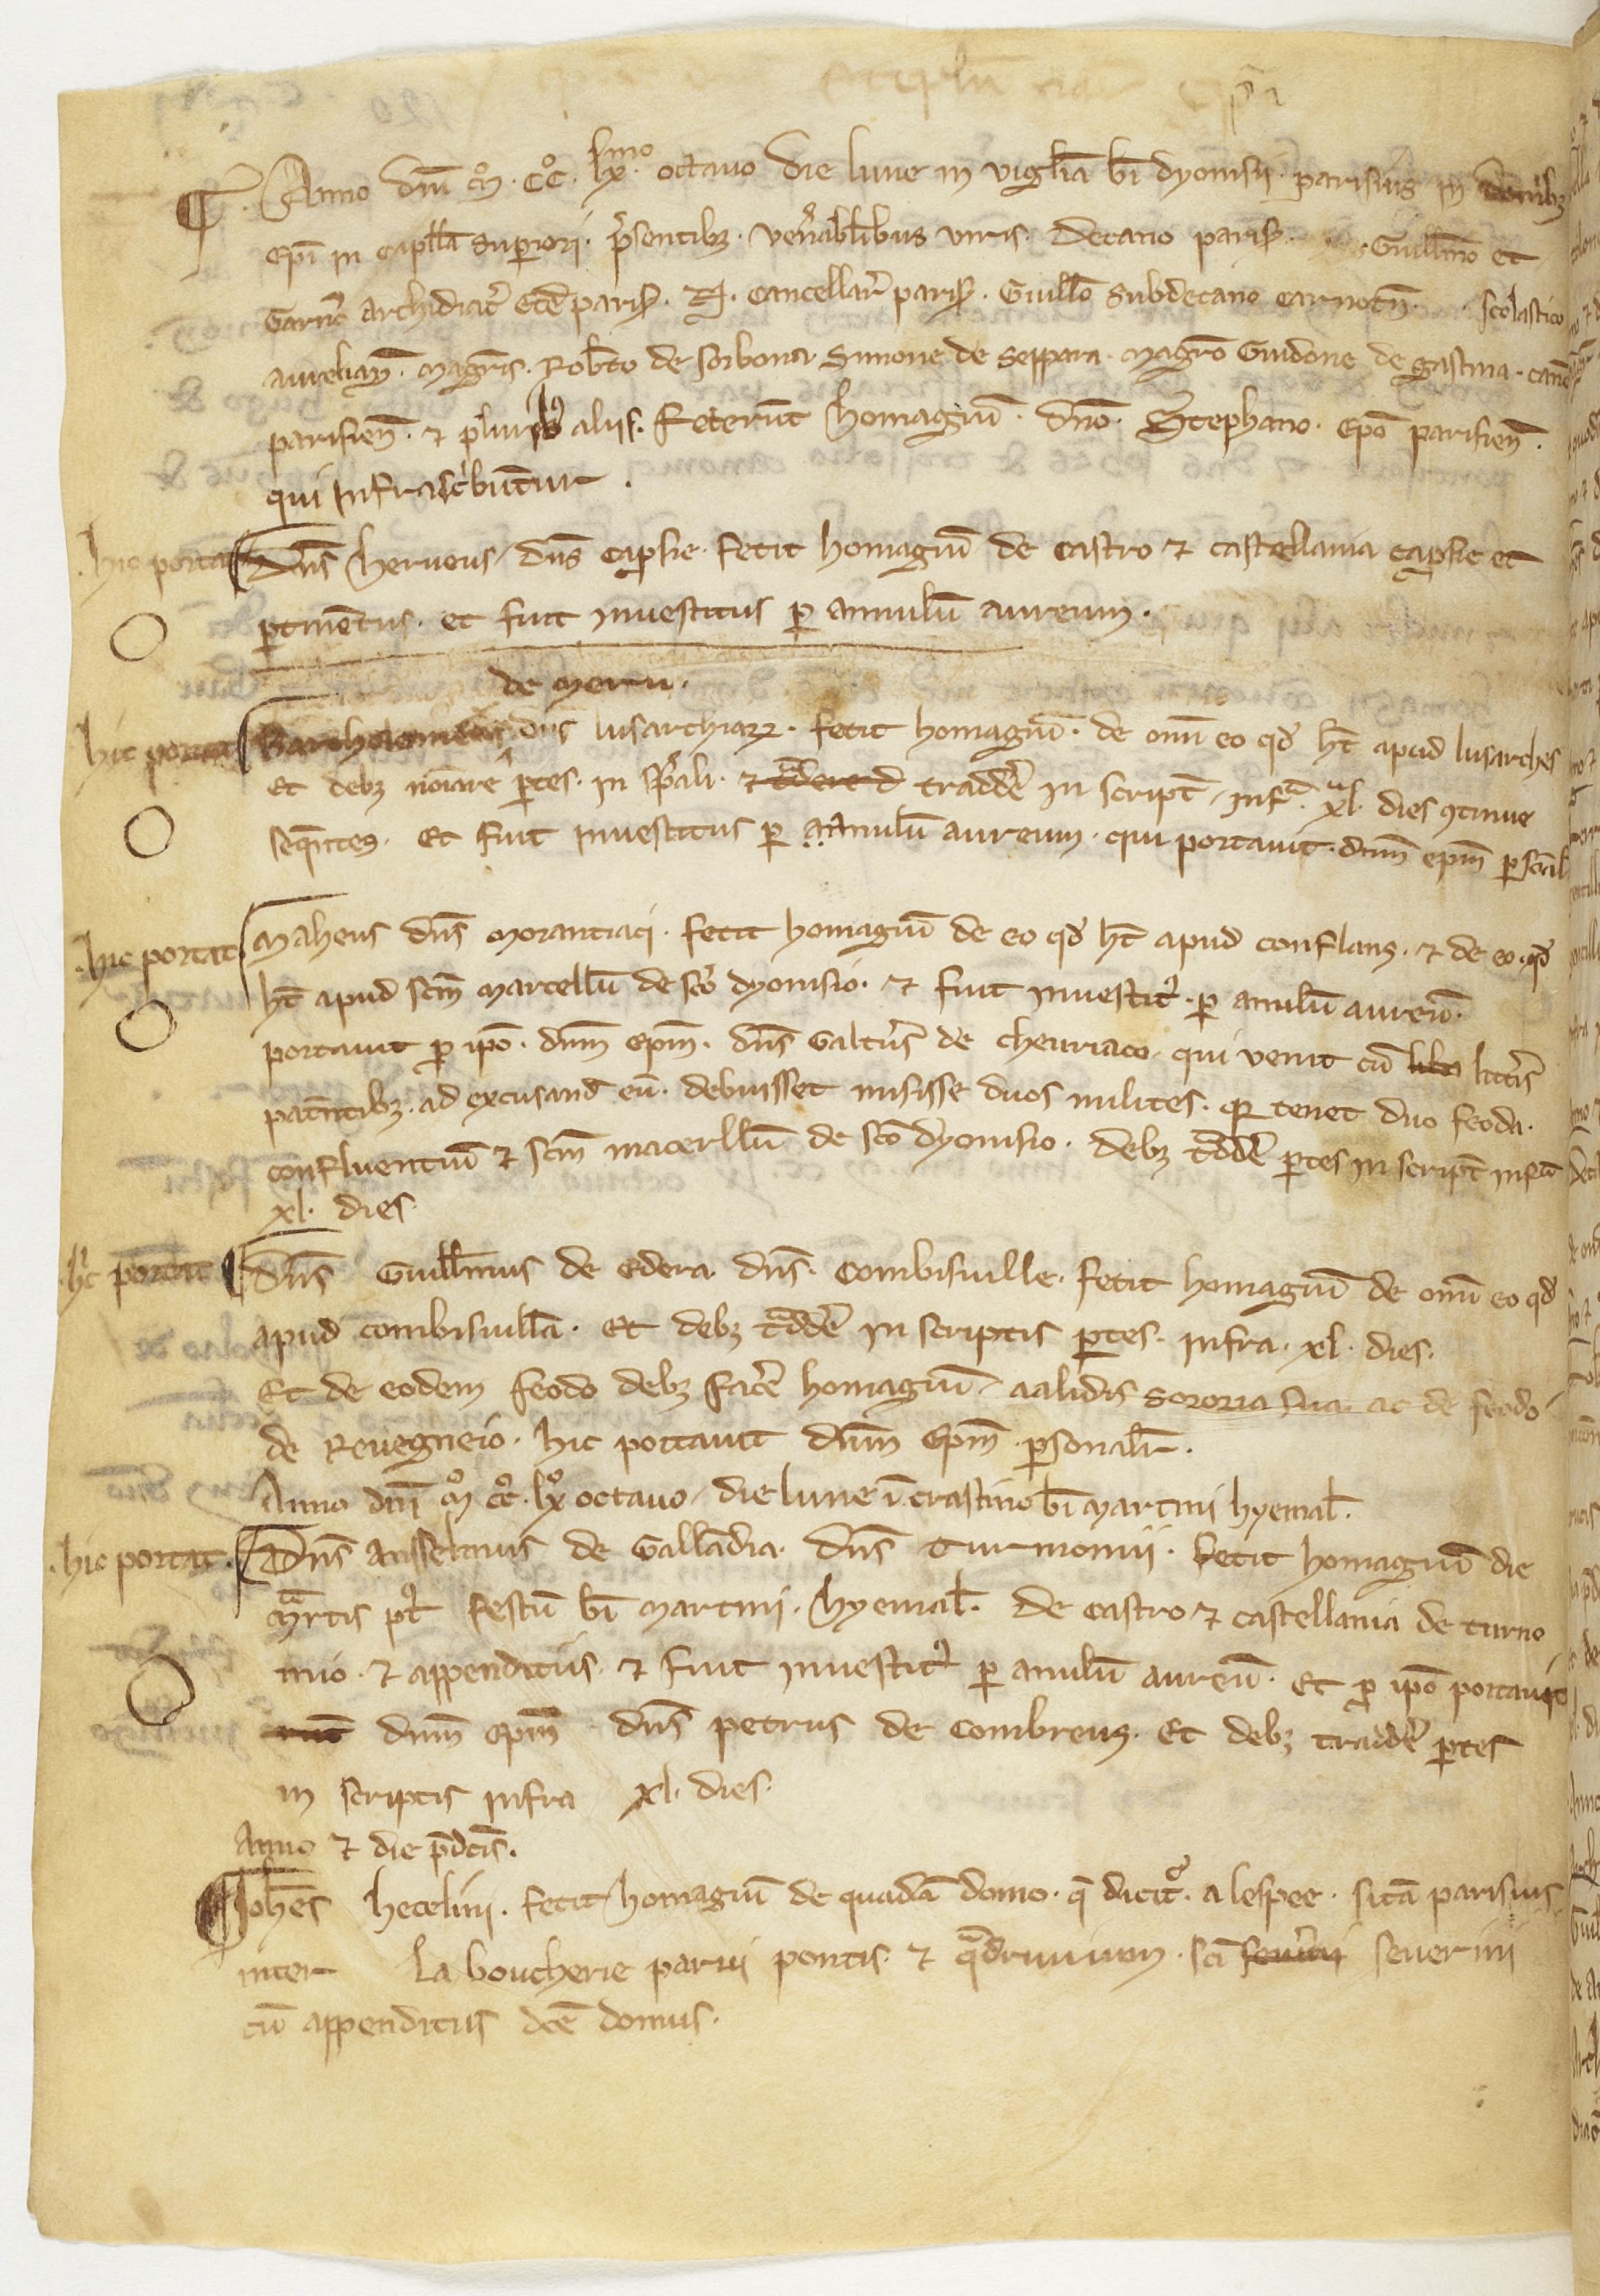 Anno dñi mͦ. ccͦ. lxͫͦ. octauo die lune in vigľia bī dyonisii. parisius in domibȝ
epī in capłła superiori. p̃sentibȝ. ven̾abľibus viris. Decano parisˀ. Guillm̃o et
Garñ archidiac̾ Ecc̾ parisˀ. N. cancellar̾ parisˀ. Guillõ Subdecano carnoteñ. scolastico
aurelianˀ. magr̃is. Rob̃to de sorbona Simone de Seppera. magr̃o Guidone de gastina. canoñ
parisień. ⁊ pluribꝰ aliis. Fecerūt homagiū. dño. Stephano. Ep̃o parisień.
qui infrascⁱbūtur.
hic portat Dñs herueus dñs capsie. fecit homagiū de castro ⁊ castellania capsie et
ꝑtinētiis. et fuit inuestitus ꝑ annulū aureum.
de meru.
hic portat Bartholomeus dñs lusarchiaꝝ. fecit homagiū. de oīni eo qď ht̃ apud lusarches
Et debȝ noīare ꝑtes. in sp̃ali. tradde᷒ in script̃. infᵃ. xl. dies ꝯtinue
seq̃ntes. Et fuit inuestitus ꝑ annulū aureum. qui portauit. dñm ep̃m ꝑsoñal
hic portat. Maheus dñs Morantiaci. fecit homagiū de eo qď ht̃ apud conflans. ⁊ de eo. qď
ht̃ apud scm̃ Marcellū de sc̃o dyonisio. ⁊ fuit inuestitꝰ. ꝑ anulū aureū.
portauit ꝓ ip̃o. dñm ep̃m. dñs Galtͤrs de cheuriaco. qui venit cū litt̃is
patētibȝ. ad excusanđ eū. debuisset misisse duos milites. qꝛ tenet duo feoda.
confluentiū ⁊ scm̃ macerllū de sc̃o dyonisio. debȝ tᵃdde᷒ ꝑtes in script̃ infra
xl. dies.
hͥc portat Dñs Guillm̃us de Edera. dñs. Combisuille. fecit homagiū de oīni eo qď
apud combisuillā. Et debȝ tᵃdde᷒ in scriptis ꝑtes. infra. xl. dies.
Et de eodem feodo debȝ face᷒ homagiū aalidis sororia sua ac de feodo
de Reuegneio. hic portauit dñm Ep̃m. ꝑsonalir̃.
Anno dñi mͦ ccͦ. lxͦ octauo die lune ī crastino bī Martini hyemal̃.
hic portat. Dñs anssellmus de Gallādia. dñs turnomii. fecit homagiū die
mᵃrtis pꝰt festū bī Martini. hyemal̃. de castro ⁊ castellania de turno
mio. ⁊ appenditiis. ⁊ fuit inuestitꝰ ꝑ anulū aureū. Et ꝓ ip̃o portauit
dñm Ep̃m dñs petrus de combreus. Et debȝ tradde᷒ ꝑtes
in scriptis infra xl. dies.
Anno ⁊ die p̃dc̃is.
Joh̃es hecelini. fecit homagiū de quadā domo. q̃ dicitᷣ. a lespee. sitā parisius
inter la boucherie parui pontis. ⁊ qᵃdruuium. sc̃i seuerini
cū appenditiis dc̃e domus.